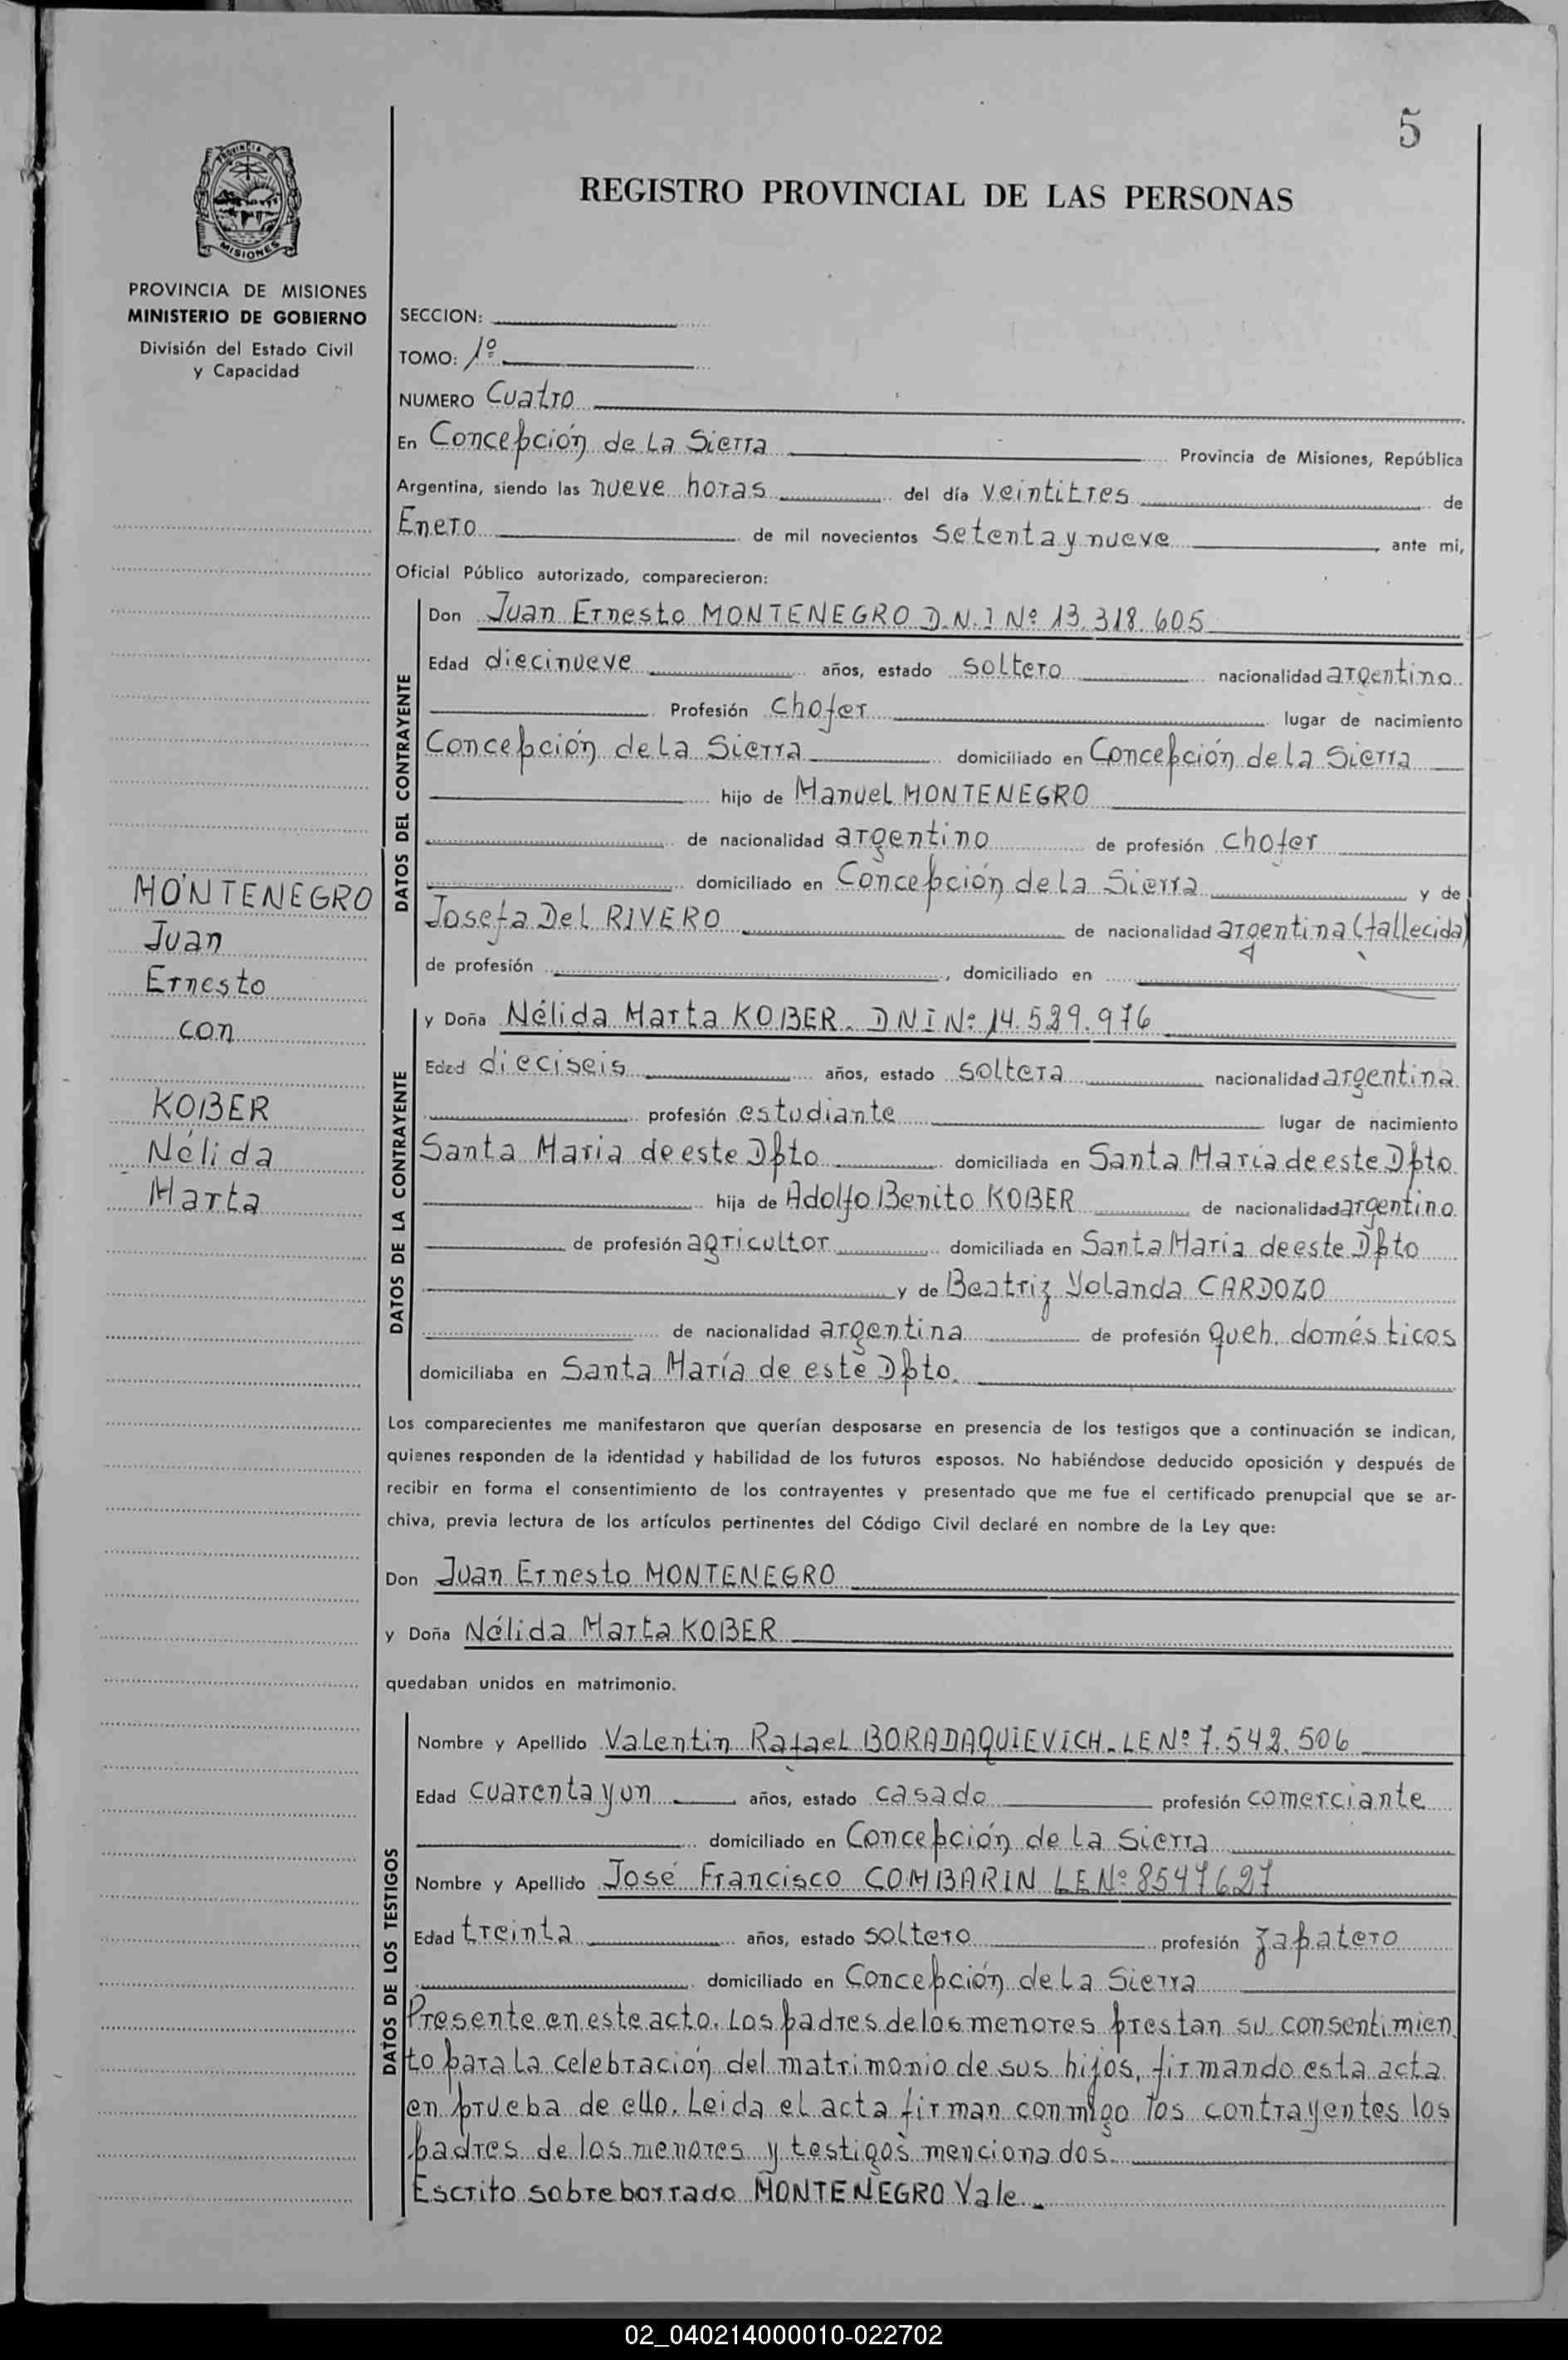 5
PROVINCIA DE
MISIONES
REGISTRO PROVINCIAL DE LAS PERSONAS
PROVINCIA DE MISIONES
MINISTERIO DE GOBIERNO
División del Estado Civil
y Capacidad
SECCION:
TOMO: 1º
NUMERO Cuatro
En Concepción de La Sierra Provincia de Misiones, República
Argentina, siendo las nueve horas del día veintitres de
Enero de mil novecientos setenta y nueve, ante mi,
Oficial Público autorizado, comparecieron:
DATOS DEL CONTRAYENTE
Don Juan Ernesto MONTENEGRO D.N.I Nº 13.318.605
Edad diecinueve años, estado soltero nacionalidad argentino
Profesión chofer lugar de nacimiento
Concepción de La Sierra domiciliado en Concepción de la Sierra
hijo de Manuel MONTENEGRO
de nacionalidad argentino de profesión chofer
domiciliado en Concepción de La Sierra y de
Josefa Del RIVERO de nacionalidad argentina (fallecida)
de profesión , domiciliado en
MONTENEGRO
Juan
Ernesto
con
KOBER
Nélida
Marta
DATOS DE LA CONTRAYENTE
y Doña Nélida Marta KOBER. DNI Nº 14.529.976
Edad dieciseis años, estado soltera nacionalidad argentina
profesión estudiante lugar de nacimiento
Santa Maria de este Dpto domiciliada en Santa Maria de este Dpto
hija de Adolfo Benito KOBER de nacionalidad argentino
de profesión agricultor domiciliada en Santa Maria de este Dpto
y de Beatriz Yolanda CARDOZO
de nacionalidad argentina de profesión queh. domésticos
domiciliaba en Santa María de este Dpto.
Los comparecientes me manifestaron que querían desposarse en presencia de los testigos que a continuación se indican,
quienes responden de la identidad y habilidad de los futuros esposos. No habiéndose deducido oposición y después de
recibir en forma el consentimiento de los contrayentes y presentado que me fue el certificado prenupcial que se ar-
chiva, previa lectura de los artículos pertinentes del Código Civil declaré en nombre de la Ley que:
Don Juan Ernesto MONTENEGRO
y Doña Nélida Marta KOBER
quedaban unidos en matrimonio.
DATOS DE LOS TESTIGOS
Nombre y Apellido Valentin Rafael BORADAQUIEVICH. LE Nº 7.542.506
Edad cuarenta y un años, estado casado profesión comerciante
domiciliado en Concepción de la Sierra
Nombre y Apellido José Francisco COMBARIN LE Nº 8547627
Edad treinta años, estado soltero profesión zapatero
domiciliado en Concepción de La Sierra
Presente en este acto. Los padres de los menores prestan su consentimien
to para La celebración del matrimonio de sus hijos, firmando esta acta
en prueba de ello. Leida el acta firman conmigo los contrayentes los
padres de los menores y testigos mencionados.
Escrito sobre borrado MONTENEGRO Vale.
02_040214000010-022702